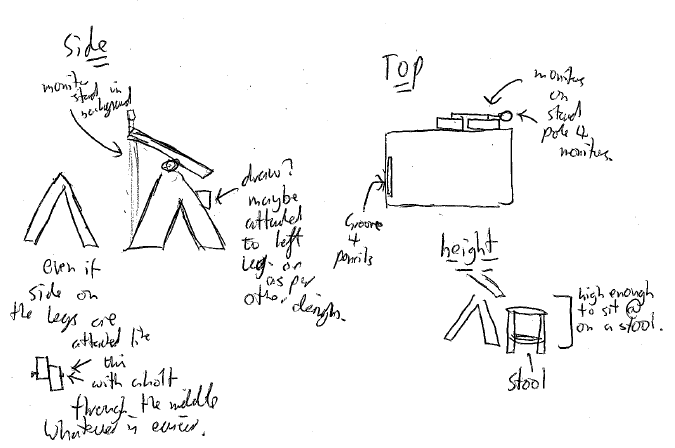 Side
monitor
stand in
background
draw?
maybe
attached
to left
leg or
as per
other designs.
even if
side on
the legs are
attached like
this
with a bolt
through the middle
whatever is easier.
Top
monitors
on
stand
pole 4
monitors.
Groove
4
pencils
height
high enough
to sit @
on a stool.
stool